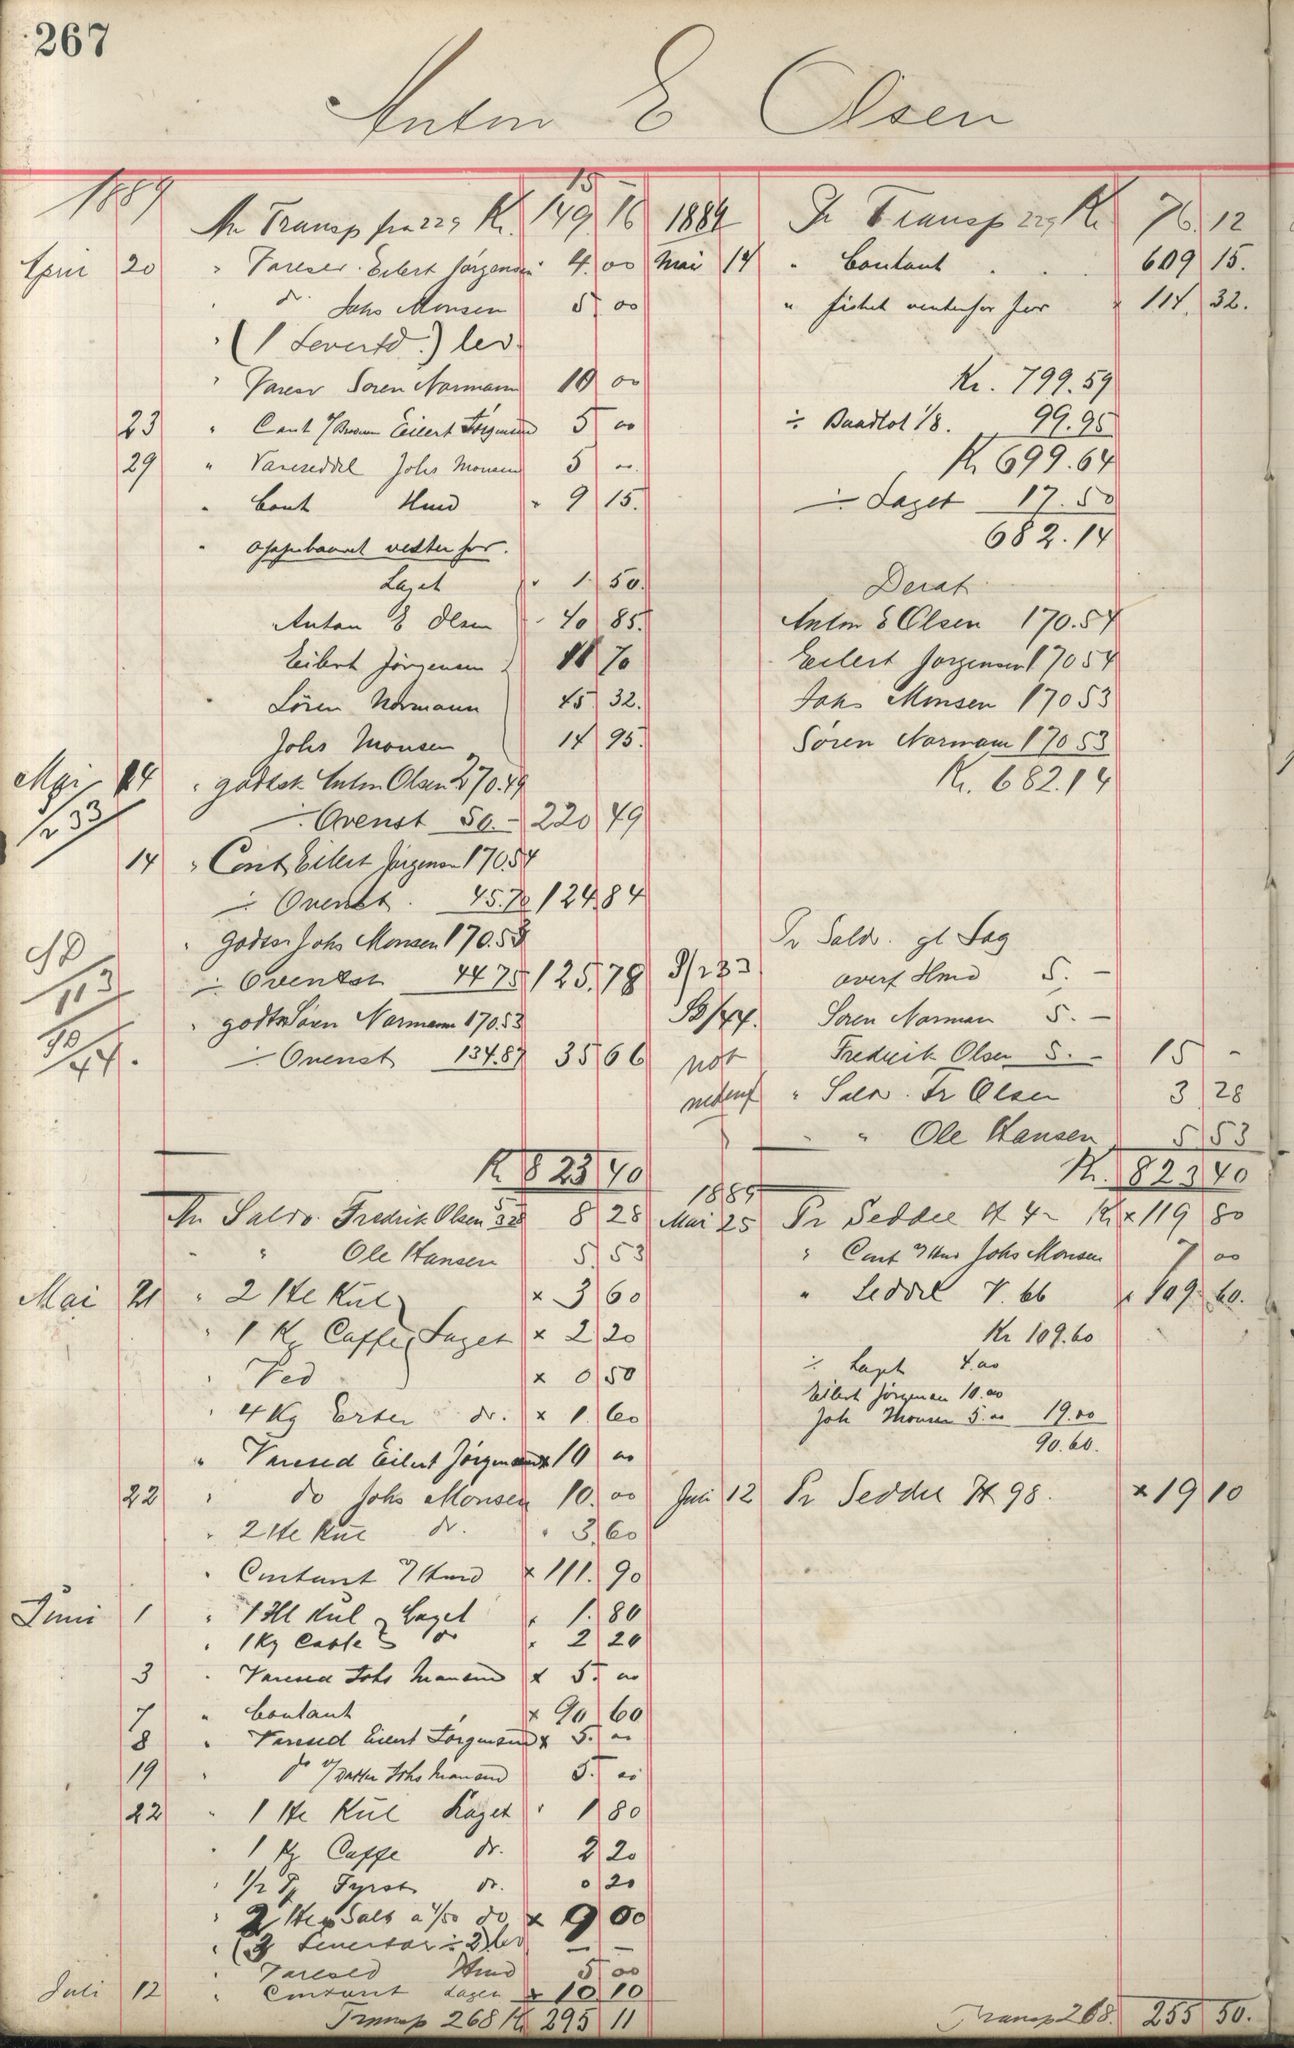 267
Anton E Olsen
1889
15 –
An Transp fra 229 Kr. 149.16
April 20 " Varesed. Eilert Jörgensen 4.00
" do. Johs Monsen 5.00
" (1 Levertd.) lev.
" Varesed Sören Normann 10 00
23 " Cont Eilert Jörgensen 5 00
29 " Vareseddel Johs Monsen 5 00
" Cont Hmd 9 15.
" oppebaaret vesterfor.
Laget 1.50.
Anton E Olsen 40 85.
Eilert Jörgensen 11 70
Sören Normann 45 32.
Johs Monsen 14 95.
Mai 14 " godtsk. Anton Olsen 270.49
233
÷ Ovenst 50.– 220 49
14 " Cont Eilert Jörgensen 170.54
÷ Ovenst. 45.70 124.84
" godtsk Johs Monsen 170.53
113
÷ Ovenst 44 75 125.78
" godtsk Sören Normann 170.53
44.
÷ Ovenst 134.87 35 66
Kr 823 40
An Saldo Fredrik Olsen 5 3 28 8 28
" " Ole Hansen 5.53
Mai 21 " 2 Hl Kul × 3 60
" 1 Kg Caffe Laget × 2 20
" Ved × 0 50
" 4 Kg Erter do. × 1.60
" Varesed Eilert Jörgensen × 10 00
22 " do Johs Monsen 10.00
" 2 Hl Kul do. 3.60
" Contant Hmd × 111.90
Juni 1 " 1 Hl Kul Laget 1.80
" 1 Kg Caffe do 2 20
3 " Varesed Johs Monsen × 5.00
7 " Contant × 90 60
8 " Varesed Eilert Jörgensen × 5.00
19 " do Johs Monsen 5.00
22 " 1 Hl Kul Laget 1 80
" 1 Kg Caffe do. 2 20
" 1/2 do. 0 20
" 2 Hl Salt a 4/50 do × 9 00
" lev – –
" Varesed Hmd 5 00
Juli 12 " Contant Laget × 10 10
Transp 268 Kr. 295 11
1889 Pr Transp 229 Kr 76.12
Mai 14 " Contant 609 15.
" fisket vesterfor × 114.32.
Kr. 799.59
÷ Baadlot 1/8. 99.95
Kr 699.64
÷ Laget 17.50
682.14
Deraf
Anton E Olsen 170.54
Eilert Jorgensen 170 54
Johs Monsen 170 53
Sören Normann 170 53
Kr. 682.14
Pr Saldo gl Lag
233 overf Hmd 5.–
44. Sören Norman 5.–
Fredrik Olsen 5.– 15 –
" Saldo Fr Olsen 3.28
" " Ole Hansen 5 53
Kr. 823 40
1889
Mai 25 Pr Seddel Kr × 119 80
" Cont Hmd Johs Monsen 7 00
" Seddel 66 × 109.60.
Kr 109.60
÷ Laget 4.00
Eilert Jörgensen 10.00
Joh Monsen 5.00 19.00
90.60.
Juli 12 Pr Seddel 98. × 19 10
Transp 268. 255 50.